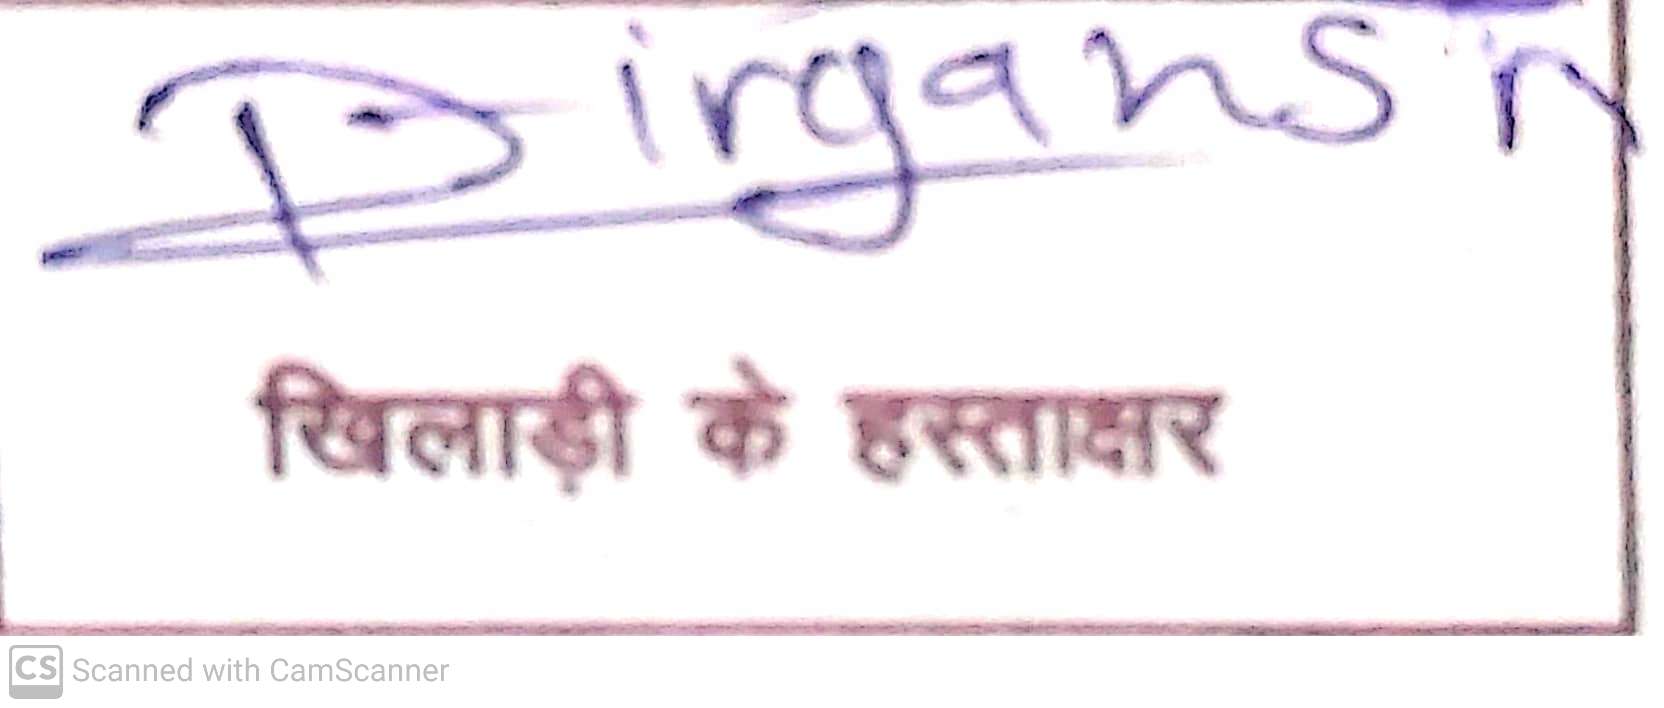 Dirgansin
खिलाड़ी के हस्ताक्षर
CS Scanned with CamScanner